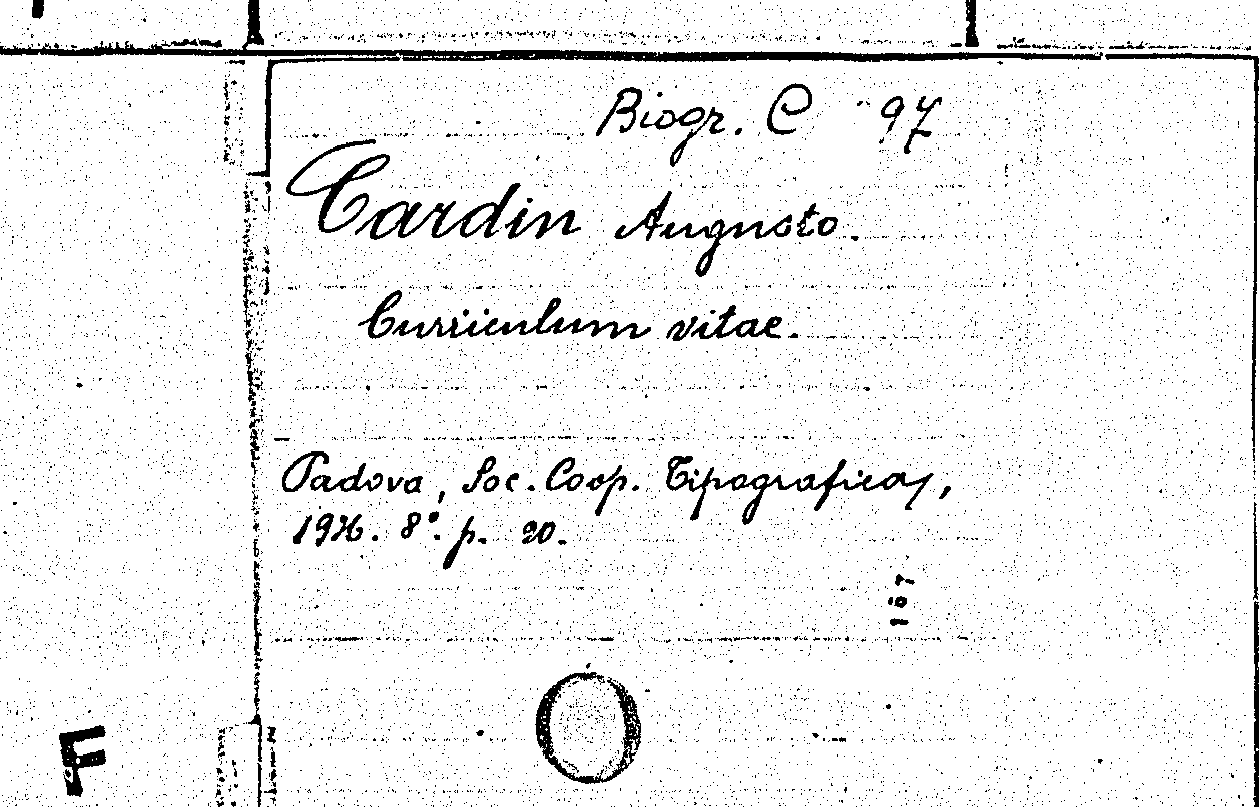 Biogr. C 97
Cardin Augusto.
Curriculum vitae.
Padova, Soc. Coop. Tipografica,
8°. p. 20.
107
F